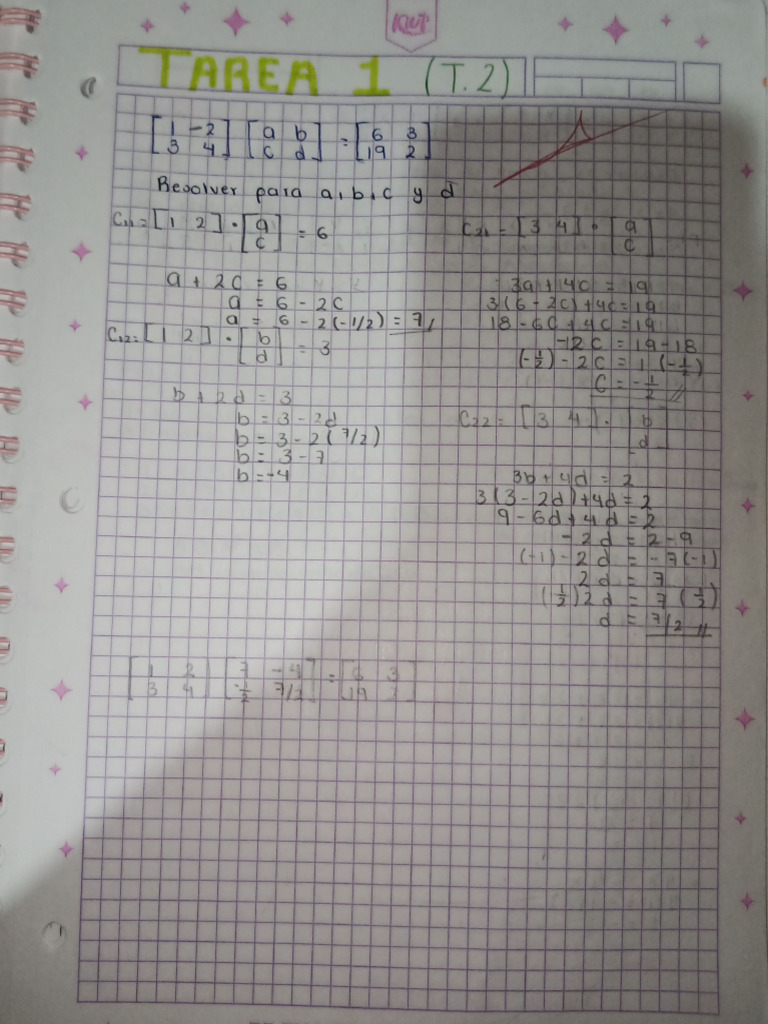 KIUT
TAREA 1 (T.2)
[1 -2] [a b] = [6 3]
[3 4] [c d] [19 2]
Resolver para a, b, c y d
C11 = [1 2] · [a c] = 6
a + 2c = 6
a = 6 - 2c
a = 6 - 2(-1/2) = 7
C12 = [1 2] · [b d] = 3
b + 2d = 3
b = 3 - 2d
b = 3 - 2(7/2)
b = 3 - 7
b = -4
C21 = [3 4] · [a c]
3a + 4c = 19
3(6 - 2c) + 4c = 19
18 - 6c + 4c = 19
-12c = 19 - 18
(-1/2) - 2c = 1 (-1/2)
c = -1/2 //
C22 = [3 4] · [b d]
3b + 4d = 2
3(3 - 2d) + 4d = 2
9 - 6d + 4d = 2
- 2d = 2 - 9
(-1) - 2d = -7(-1)
2d = 7
(1/2) 2d = 7 (1/2)
d = 7/2 //
[1 2] [7 -4] = [6 3]
[3 4] [-1/2 7/2] [19 2]